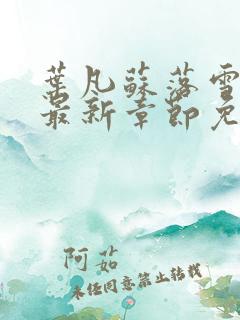 葉凡蘇落雪
最新章節免
阿茹
未经同意禁止转载